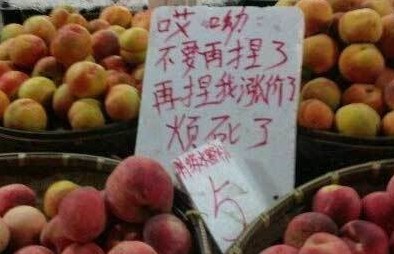 哎呦:
不要再捏了
再捏我涨价了
烦死了
5